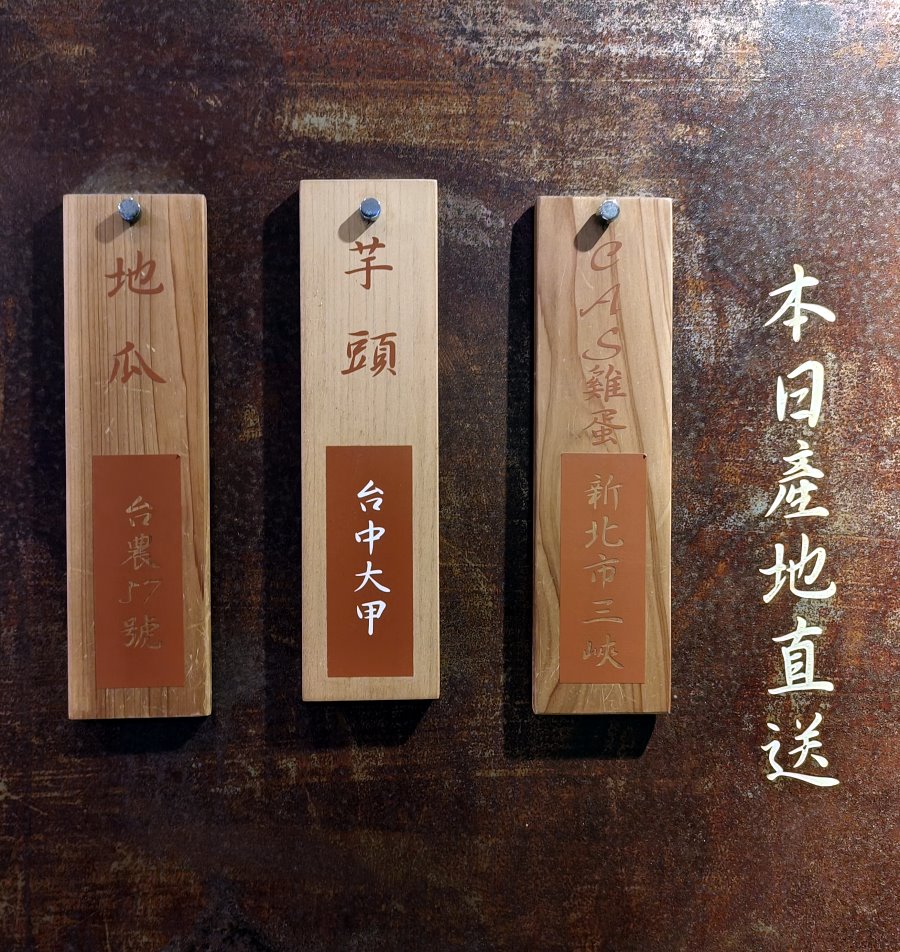 本日產地直送
CAS雞蛋
新北市三峽
芋頭
台中大甲
地瓜
台農57號